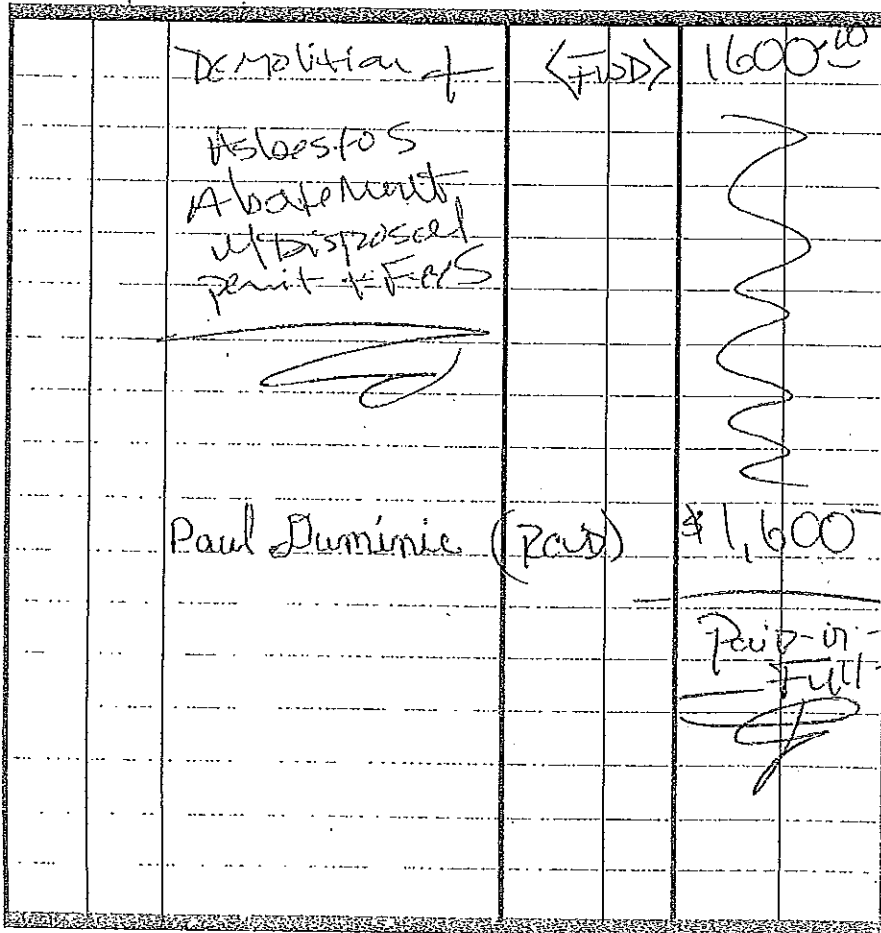 Demolition + <FWD> 1600.00
Asbestos
Abatement
w/ Disposal
permit + Fees
Paul Duminie (PAID) $1,600
Paid-in-
Full